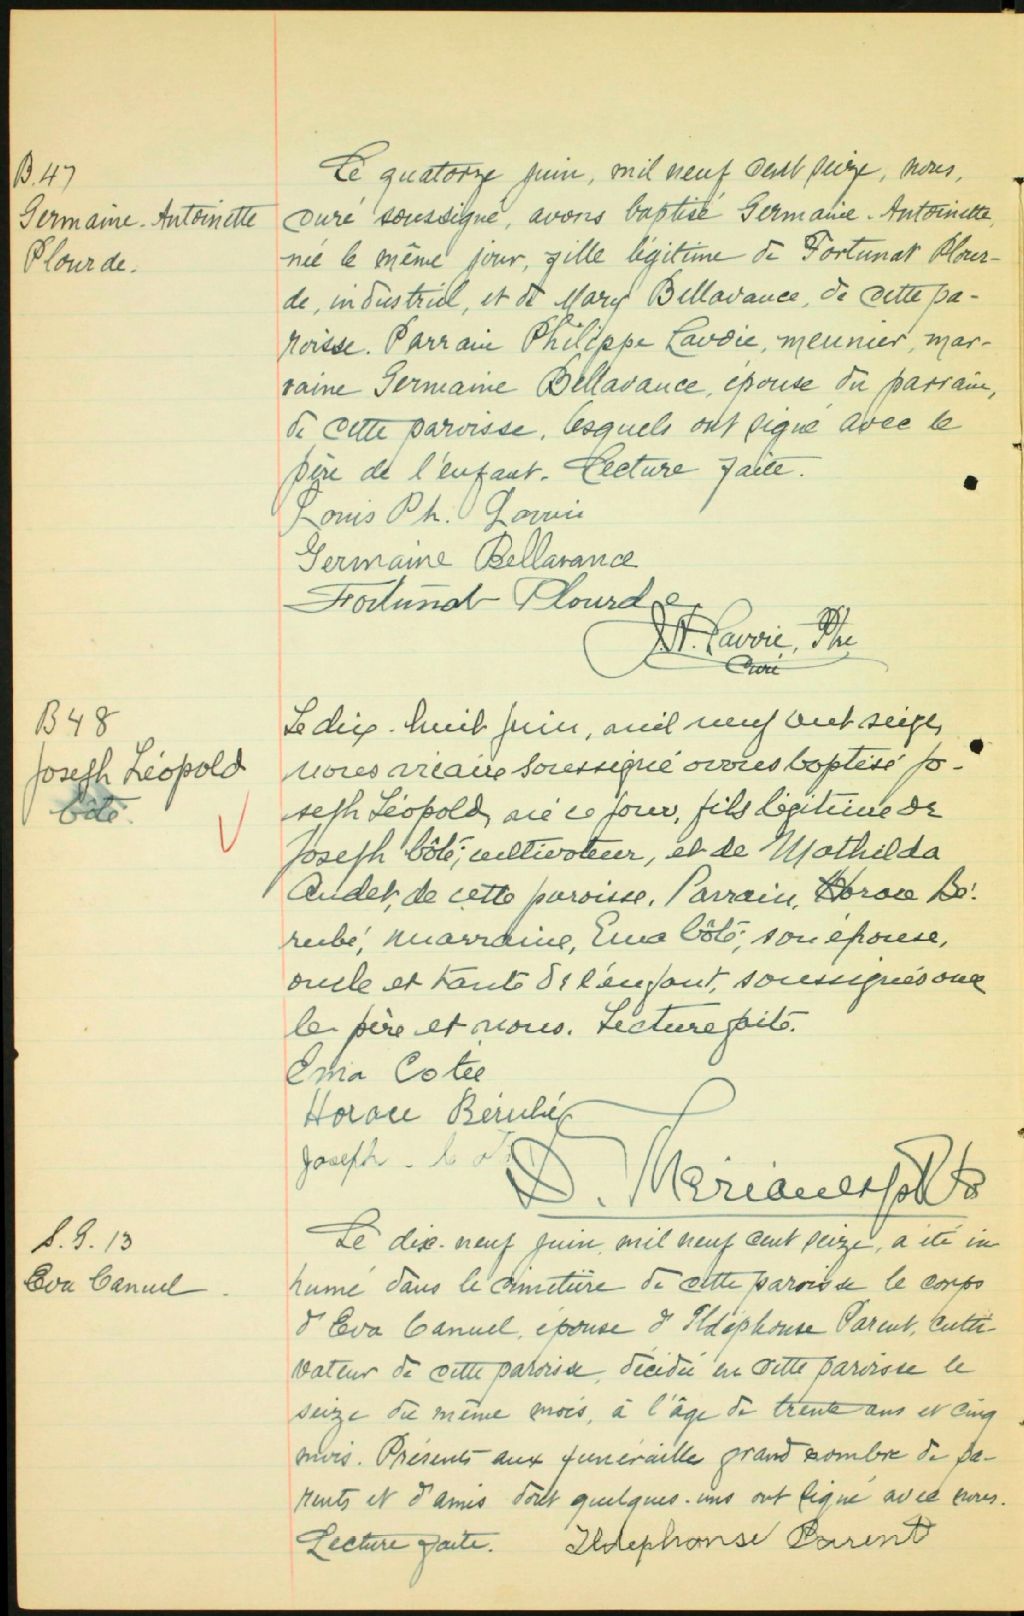 B.47
Germaine-Antoinette
Plourde.
Le quatorze juin, mil neuf cent seize, nous,
curé soussigné, avons baptisé Germaine-Antoinette,
née le même jour, fille légitime de Fortunat Plour-
de, industriel, et de Mary Bellavance, de cette pa-
roisse. Parrain Philippe Lavoie, meunier, mar-
raine Germaine Bellavance, épouse du parrain,
de cette paroisse, lesquels ont signé avec le
père de l'enfant. Lecture faite.
Louis Ph. Lavoie
Germaine Bellavance
Fortunat Plourde
Lavoie, Ptre
Curé
B 48
Joseph Léopold
Côté.
Le dix-huit juin, mil neuf cent seize,
nous vicaire soussigné avons baptisé Jo-
seph Léopold, né ce jour, fils légitime de
Joseph Côté, cultivateur, et de Mathilda
Audet, de cette paroisse. Parrain, Horace Bé-
rubé, marraine, Ema Côté, son épouse,
oncle et tante de l'enfant, soussignés avec
le père et nous. Lecture faite.
Ema Cotée
Horace Bérubé
Joseph
D.
S.G. 13
Eva Canuel
Le dix-neuf juin, mil neuf cent seize, a été in
humé dans le cimetière de cette paroisse le corps
d'Eva Canuel, épouse d'Ildephonse Parent, culti-
vateur de cette paroisse, décédée en cette paroisse le
seize du même mois, à l'âge de trente ans et cinq
mois. Présents aux funéraille grand nombre de pa-
rents et d'amis dont quelques-uns ont signé avec nous.
Lecture faite. Ildephonse Parent